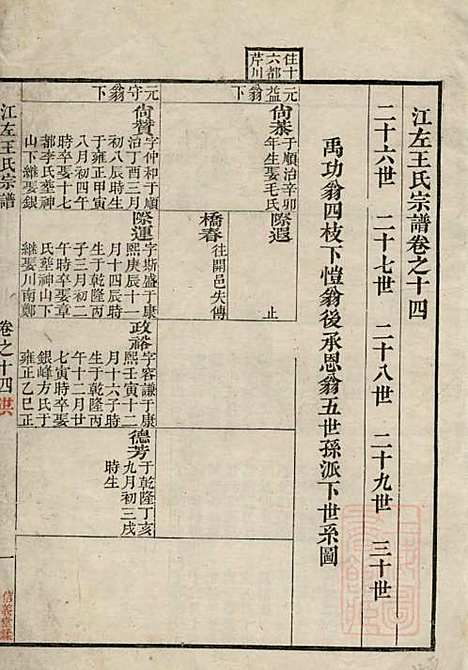 住十
六都
芹川
江左王氏宗譜卷之十四
二十六世 二十七世 二十八世 二十九世 三十世
禹功翁四枝下愷翁後承恩翁五世孫派下世系圖
元益翁下
尚恭
于順治辛卯
年生娶毛氏
際遐
止
橋春
往開邑失傳
元守翁下
尚贊
字仲和于順
治丁酉三月
初八辰時生
于雍正甲寅
八月初四午
時卒娶十七
都李氏塟神
山下繼娶銀
際運
字斯盛于康
熙庚辰十一
月十四辰時
生于乾隆丙
子三月初八
午時卒娶章
氏塟神山下
繼娶川南鄭
政裕
字容謙于康
熙壬寅十二
月十六子時
生于乾隆丙
午十二月廿
七寅時卒娶
銀峰方氏于
雍正乙巳正
德芳
于乾隆丁亥
九月初三戌
時生
江左王氏宗譜
卷之十四
信義堂